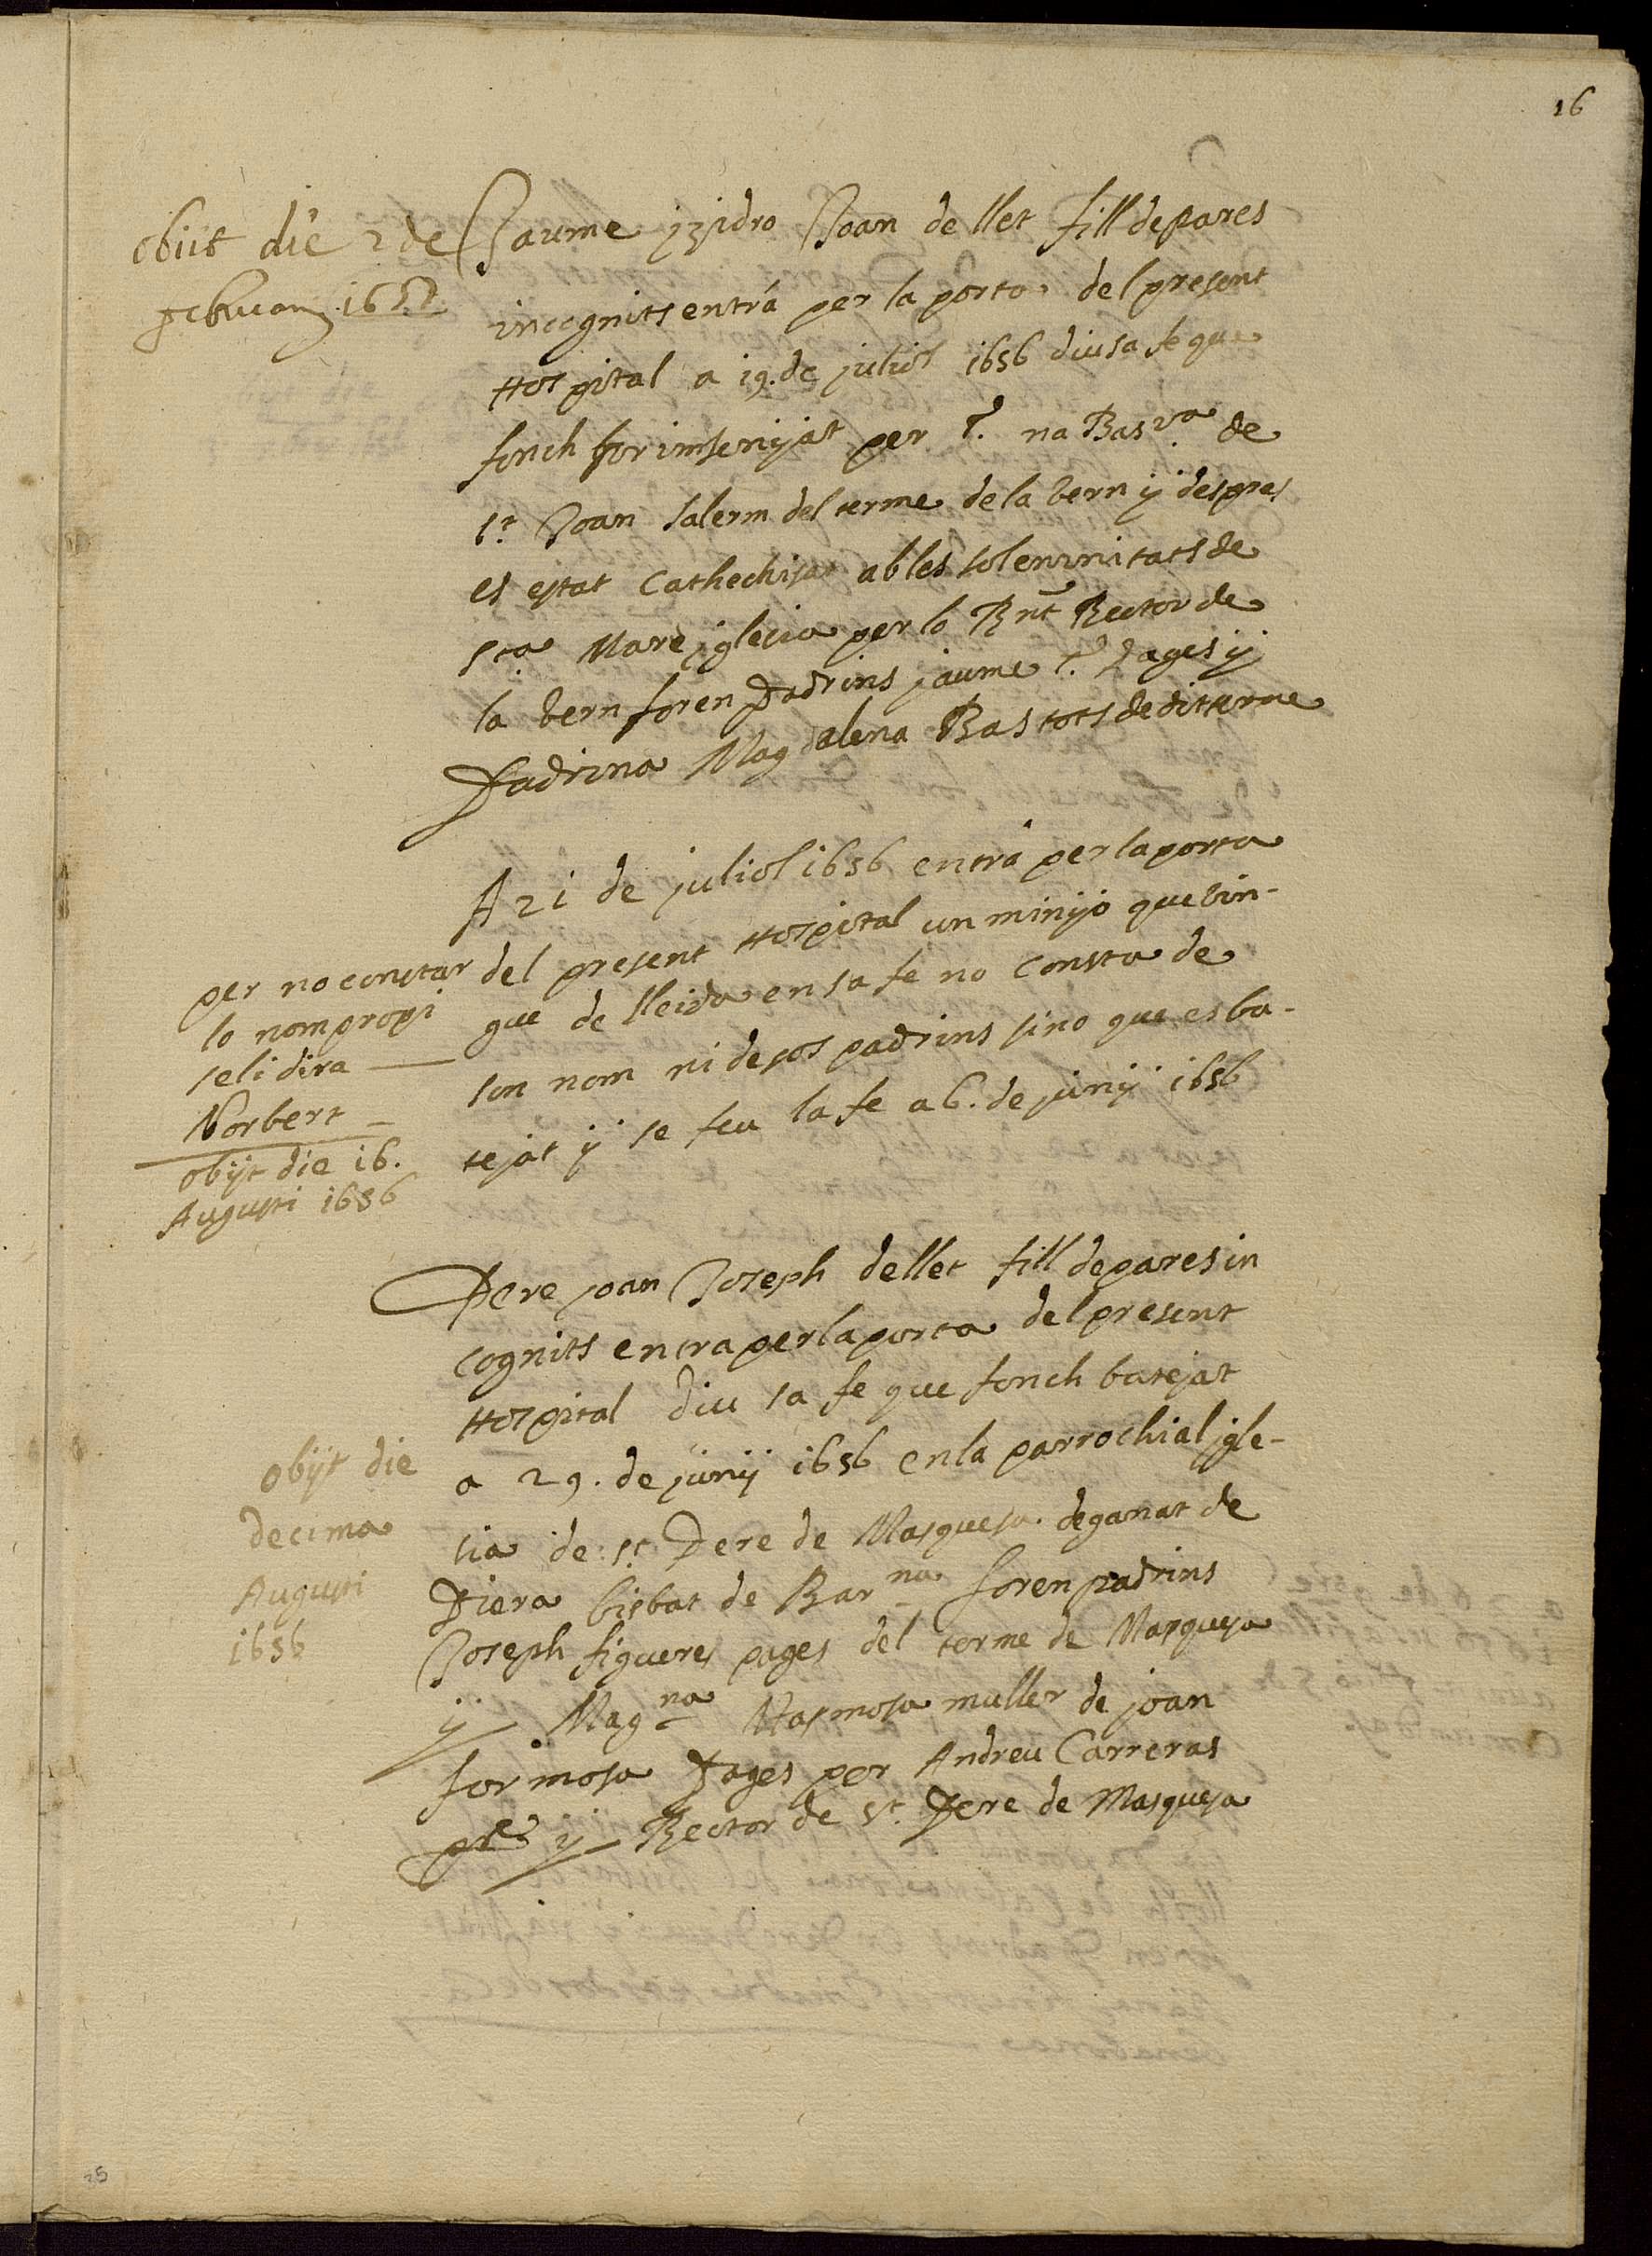 16
obiit die 2 de
februarij 1657
Jaume jzidro Joan de llet fill de pares
incognits entrá per la porta del present
Hospital a 19. de juliol 1656 diu sa fe que
fonch per T. na Bas v.a de
s.t Joan Salerm del terme de la bern ÿ despres
es estat Cathechisat ab les solemnitats de
s.ta Mare jglecia per lo Rnt Rector de
la bern foren Padrins jaume T. Pages ÿ
Padrina Magdalena Bas tots de dit terme
A 21 de juliol 1656 entrá per la porta
del present Hospital un minÿo que bin-
gue de lleida en sa fe no Consta de
son nom ni de sos padrins sino que es ba-
tejat ÿ se feu la fe a 6. de junÿ 1656
per no constar
lo nom propi
se li dira
Norbert
obÿt die 16.
Augusti 1656
Pere joan Joseph de llet fill de pares in
cognits entra per la porta del present
Hospital diu sa fe que fonch batejat
a 29. de junÿ 1656 en la parrochial jgle-
sia de s.t Pere de Masquesa deganat de
Piera bisbat de Bar.na foren padrins
Joseph figueres pages del terme de Masquesa
ÿ Mag.na Masmosa muller de joan
formosa Pages per Andreu Carreras
pre. ÿ Rector de s.t Pere de Masquesa
obÿt die
decima
Augusti
1656
25